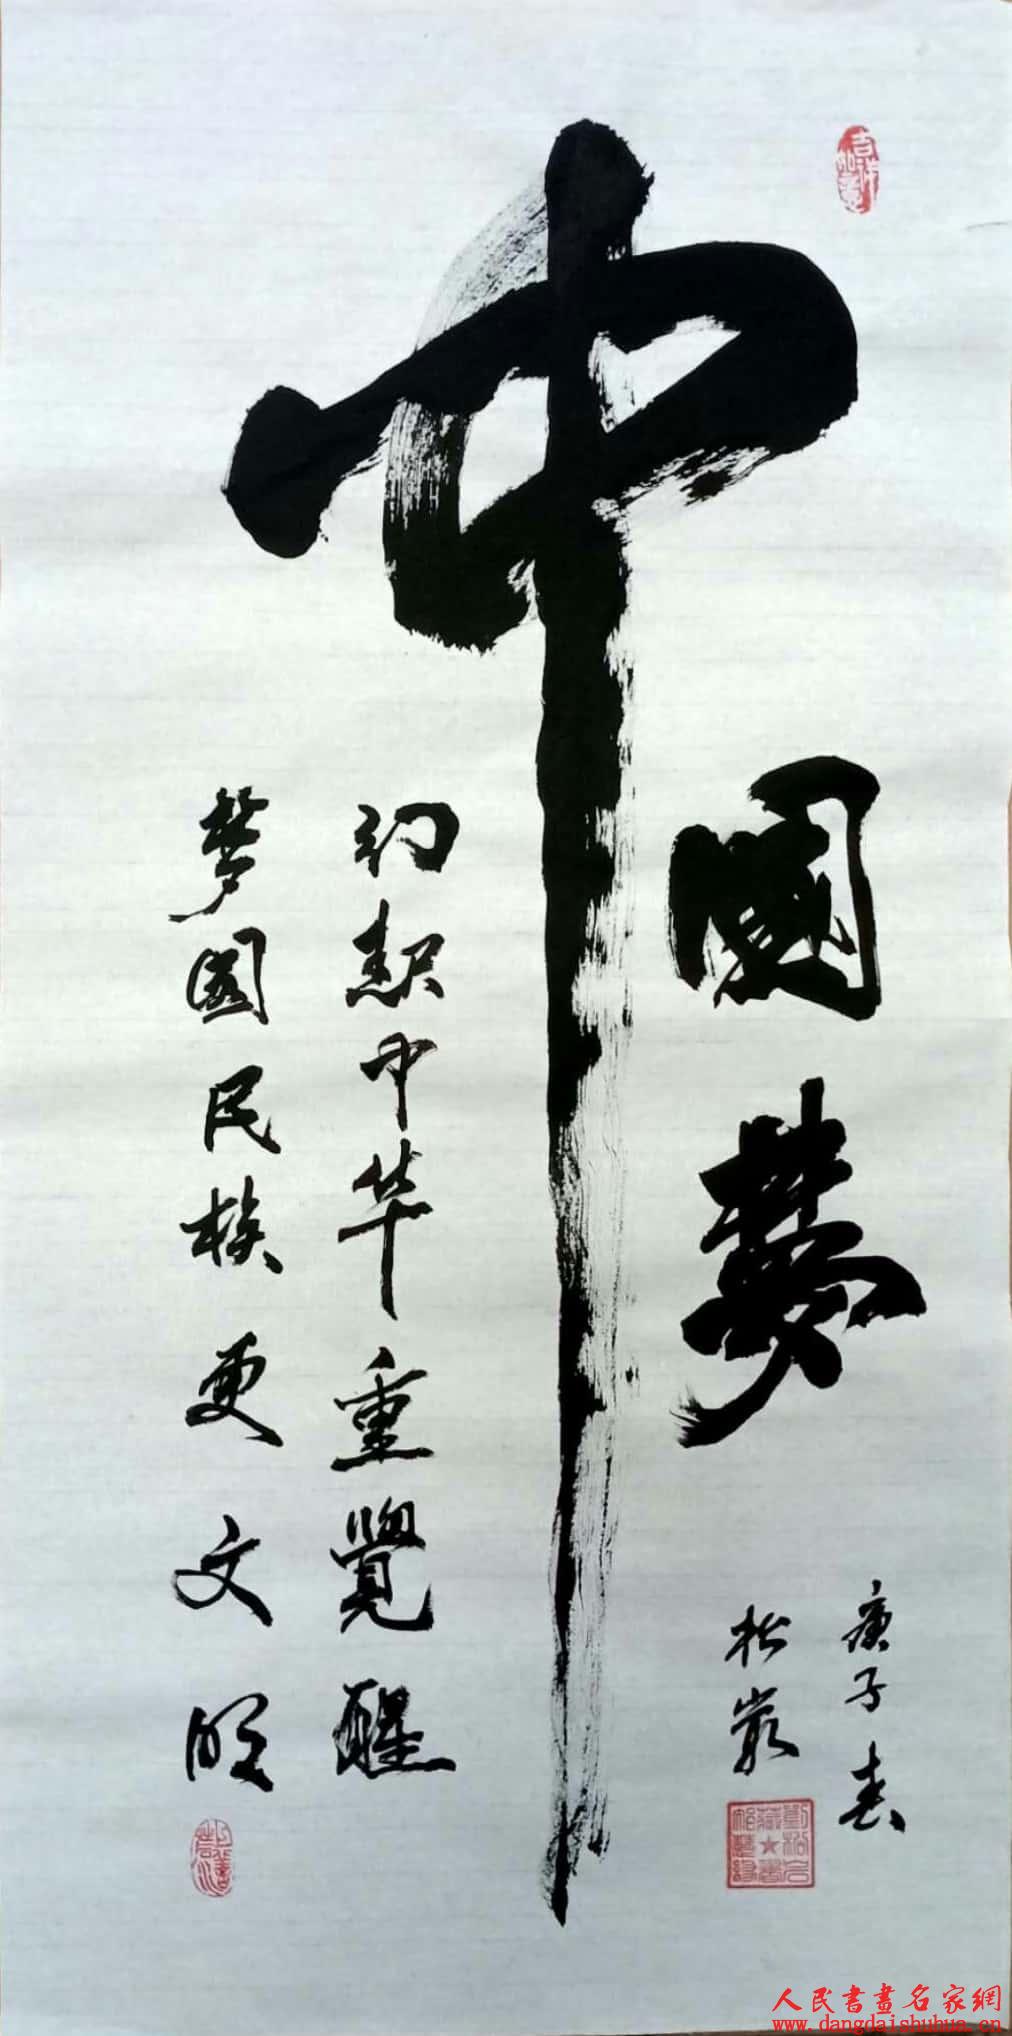 中國夢
初懇中华重覺醒
梦圆民族更文明
庚子春
松岩
吉祥如意
上善若水
人民書畫名家網
www.dangdaishuhua.cn